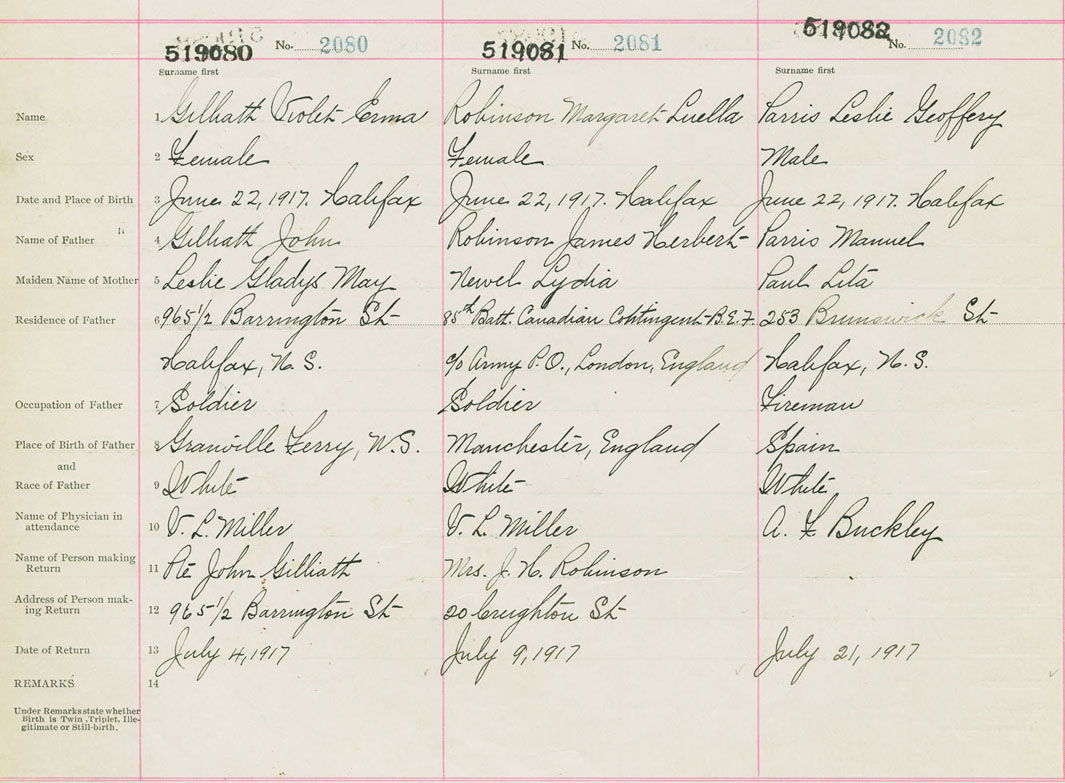 519080 No. 2080 519081 No. 2081 519082 No. 2082
Surname first Surname first Surname first
Name 1 Gilliath Violet Erma Robinson Margaret Luella Parris Leslie Geoffery
Sex 2 Female Female Male
Date and Place of Birth 3 June 22, 1917. Halifax June 22, 1917. Halifax June 22, 1917. Halifax
Name of Father 4 Gilliath John Robinson James Herbert Parris Manuel
Maiden Name of Mother 5 Leslie Gladys May Newel Lydia Paul Lita
Residence of Father 6 965 1/2 Barrington St 85th Batt. Canadian Contingent B.E.F. 253 Brunswick St
Halifax, N.S. c/o Army P.O., London, England Halifax, N.S.
Occupation of Father 7 Soldier Soldier Fireman
Place of Birth of Father 8 Granville Ferry, N.S. Manchester, England Spain
and
Race of Father 9 White White White
Name of Physician in
attendance 10 V. L. Miller V. L. Miller A. F Buckley
Name of Person making
Return 11 Pte John Gilliath Mrs. J. H. Robinson
Address of Person mak-
ing Return 12 965 1/2 Barrington St 20 Creighton St
Date of Return 13 July 4, 1917 July 9, 1917 July 21, 1917
REMARKS 14
Under Remarks state whether
Birth is Twin, Triplet, Ille-
gitimate or Still-birth.